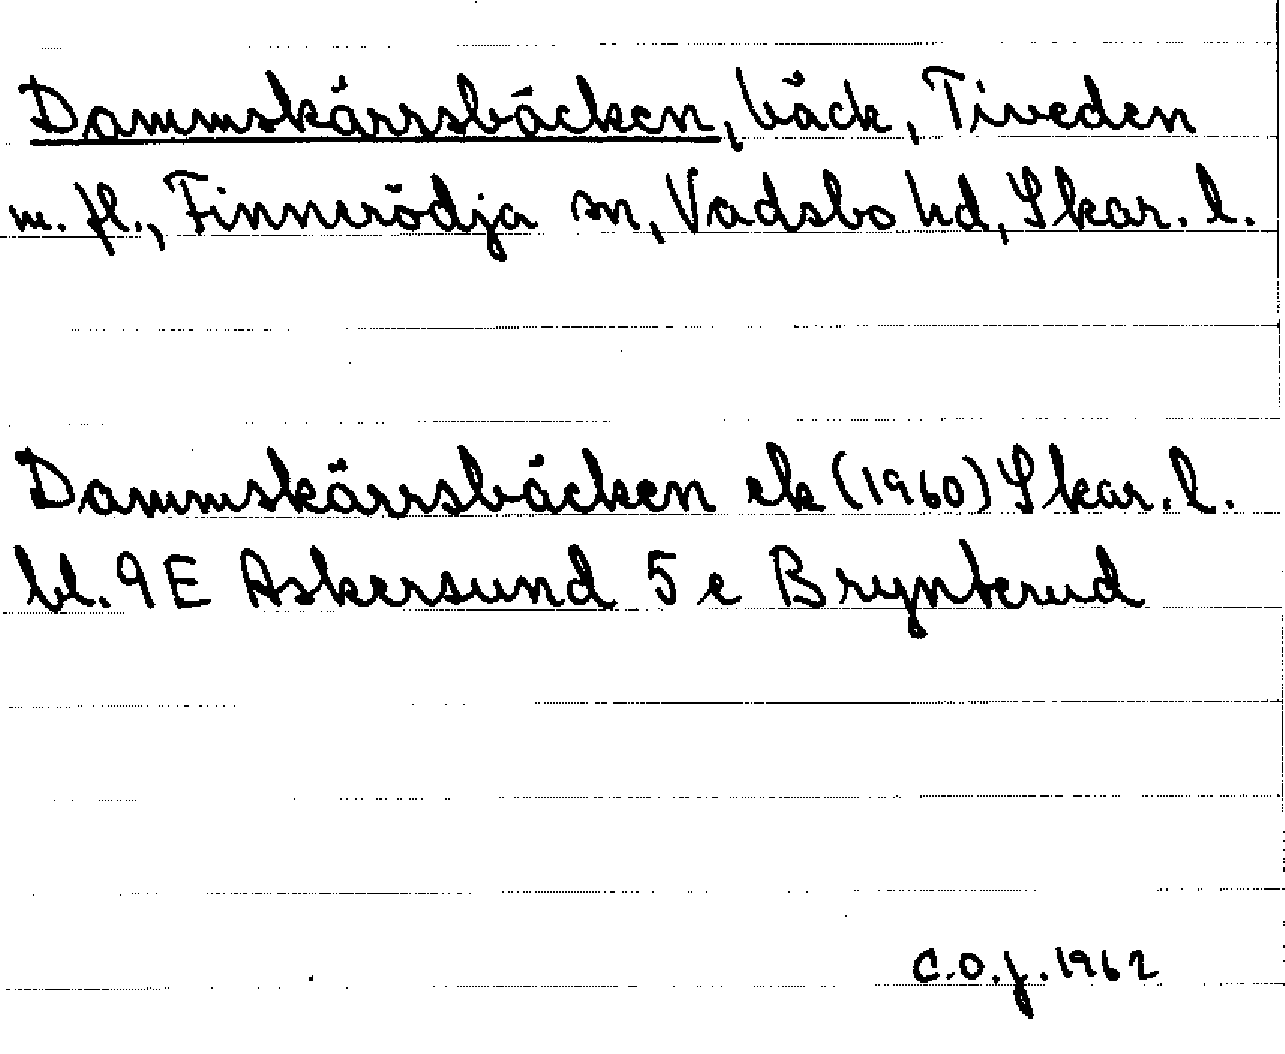 Dammskärrsbäcken, bäck, Tiveden
m. fl., Finnerödja sn, Vadsbo hd, Skar. l.
Dammskärrsbäcken ek (1960) Skar. l.
bl. 9 E Askersund 5 e Brynterud
C.O.J. 1962